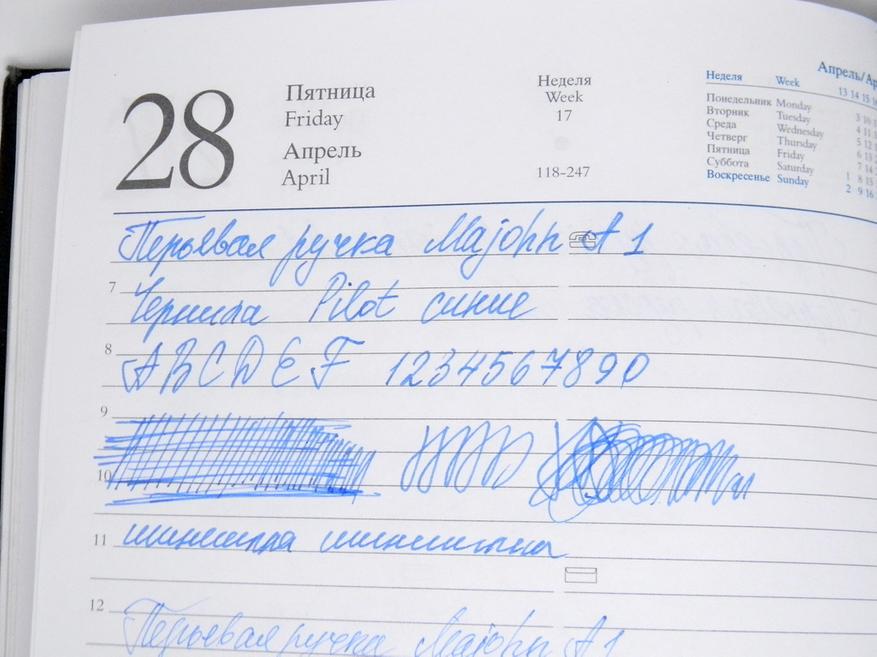 28
Пятница
Friday
Апрель
April
Неделя
Week
17
118-247
Апрель/Ap
Неделя Week 13 14 15
Понедельник Monday 3 10
Вторник Tuesday 4 11
Среда Wednesday 5 12
Четверг Thursday 6 13
Пятница Friday 7 14
Суббота Saturday 1 8 15
Воскресенье Sunday 2 9 16
Перьевая ручка Majohn A1
7
Чернила Pilot синие
8
A B C D E F 1 2 3 4 5 6 7 8 9 0
9
10
11
12
Перьевая ручка Majohn A1